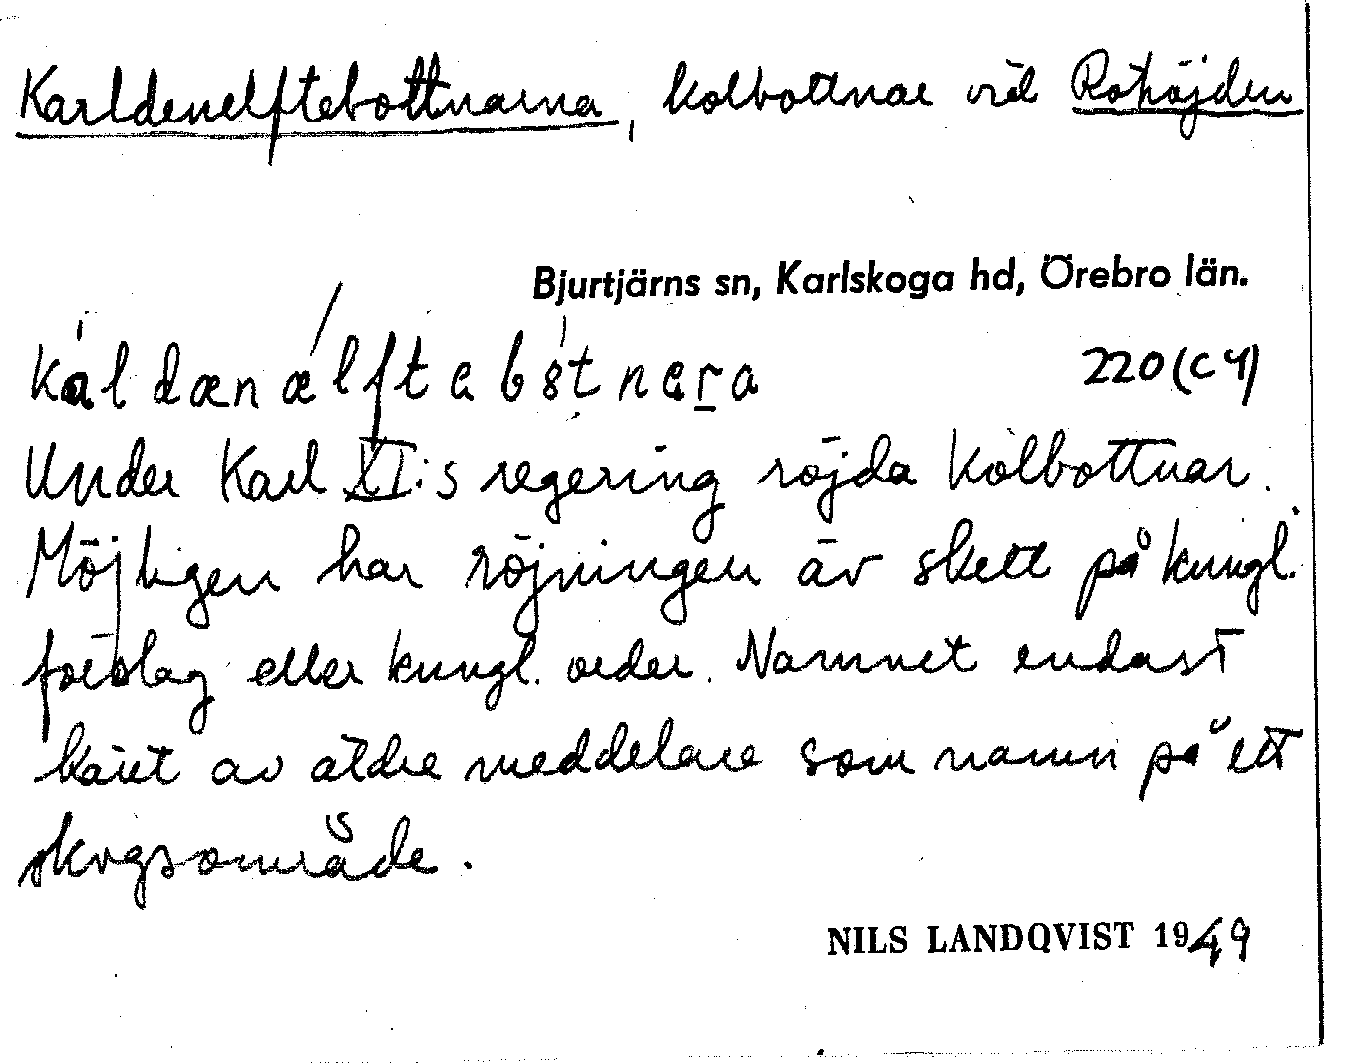 Karldenelftebottnarna, kolbottnar vid Röhöjden
Bjurtjärns sn, Karlskoga hd, Örebro län.
káldænælftebòtneṟa 220 (C 4)
Under Karl XI:s regering röjda kolbottnar.
Möjligen har röjningen äv skett på kungl.
förslag eller kungl. order. Namnet endast
känt av äldre meddelare som namn på ett
skogsområde.
NILS LANDQVIST 1949